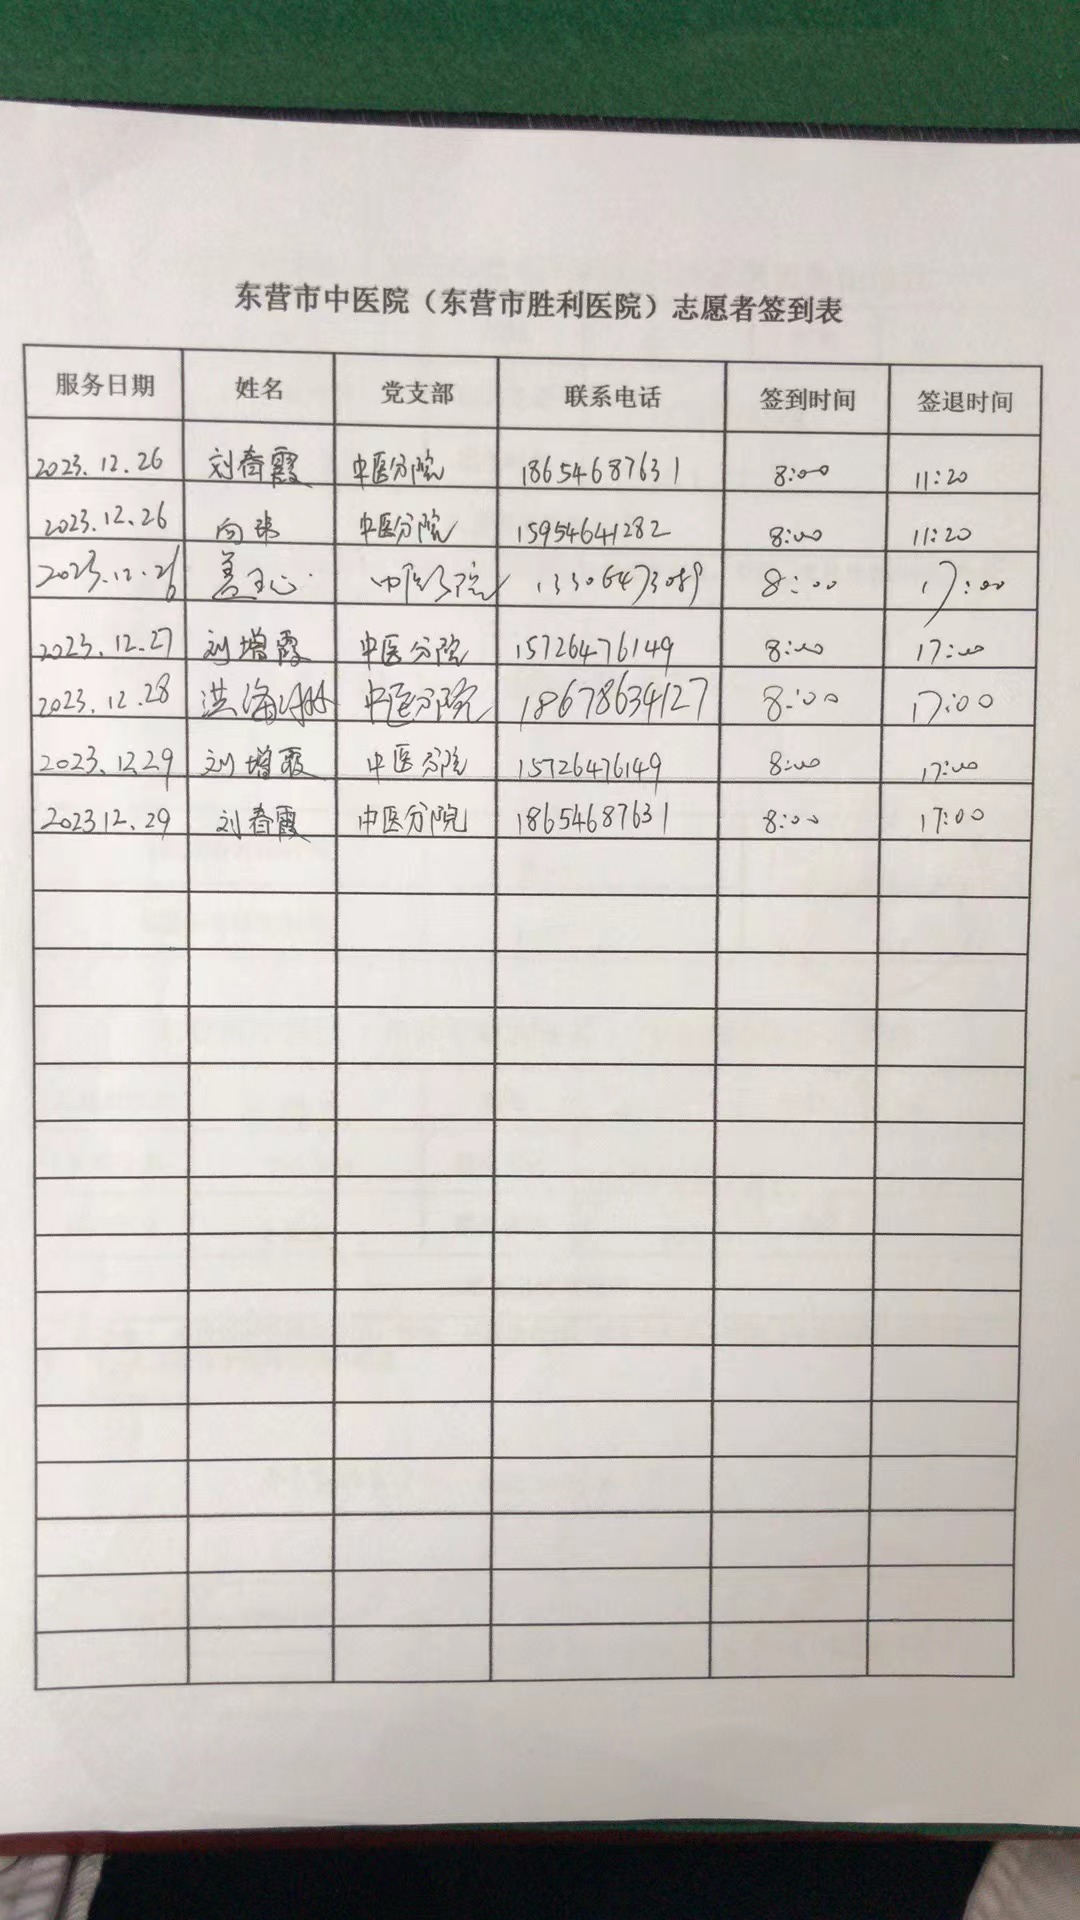 东营市中医院（东营市胜利医院）志愿者签到表
服务日期 姓名 党支部 联系电话 签到时间 签退时间
2023.12.26 刘春霞 中医分院 18654687631 8:00 11:20
2023.12.26 向珠 中医分院 15954641282 8:00 11:20
2023.12.26 中医分院 13306473089 8:00 17:00
2023.12.27 刘增霞 中医分院 15726476149 8:00 17:00
2023.12.28 洪海 中医分院 18678634127 8:00 17:00
2023.12.29 刘增霞 中医分院 15726476149 8:00 17:00
2023 12.29 刘春霞 中医分院 18654687631 8:00 17:00